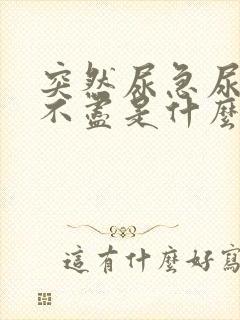 突然尿急尿
不盡是什麼
這有什麼好寫